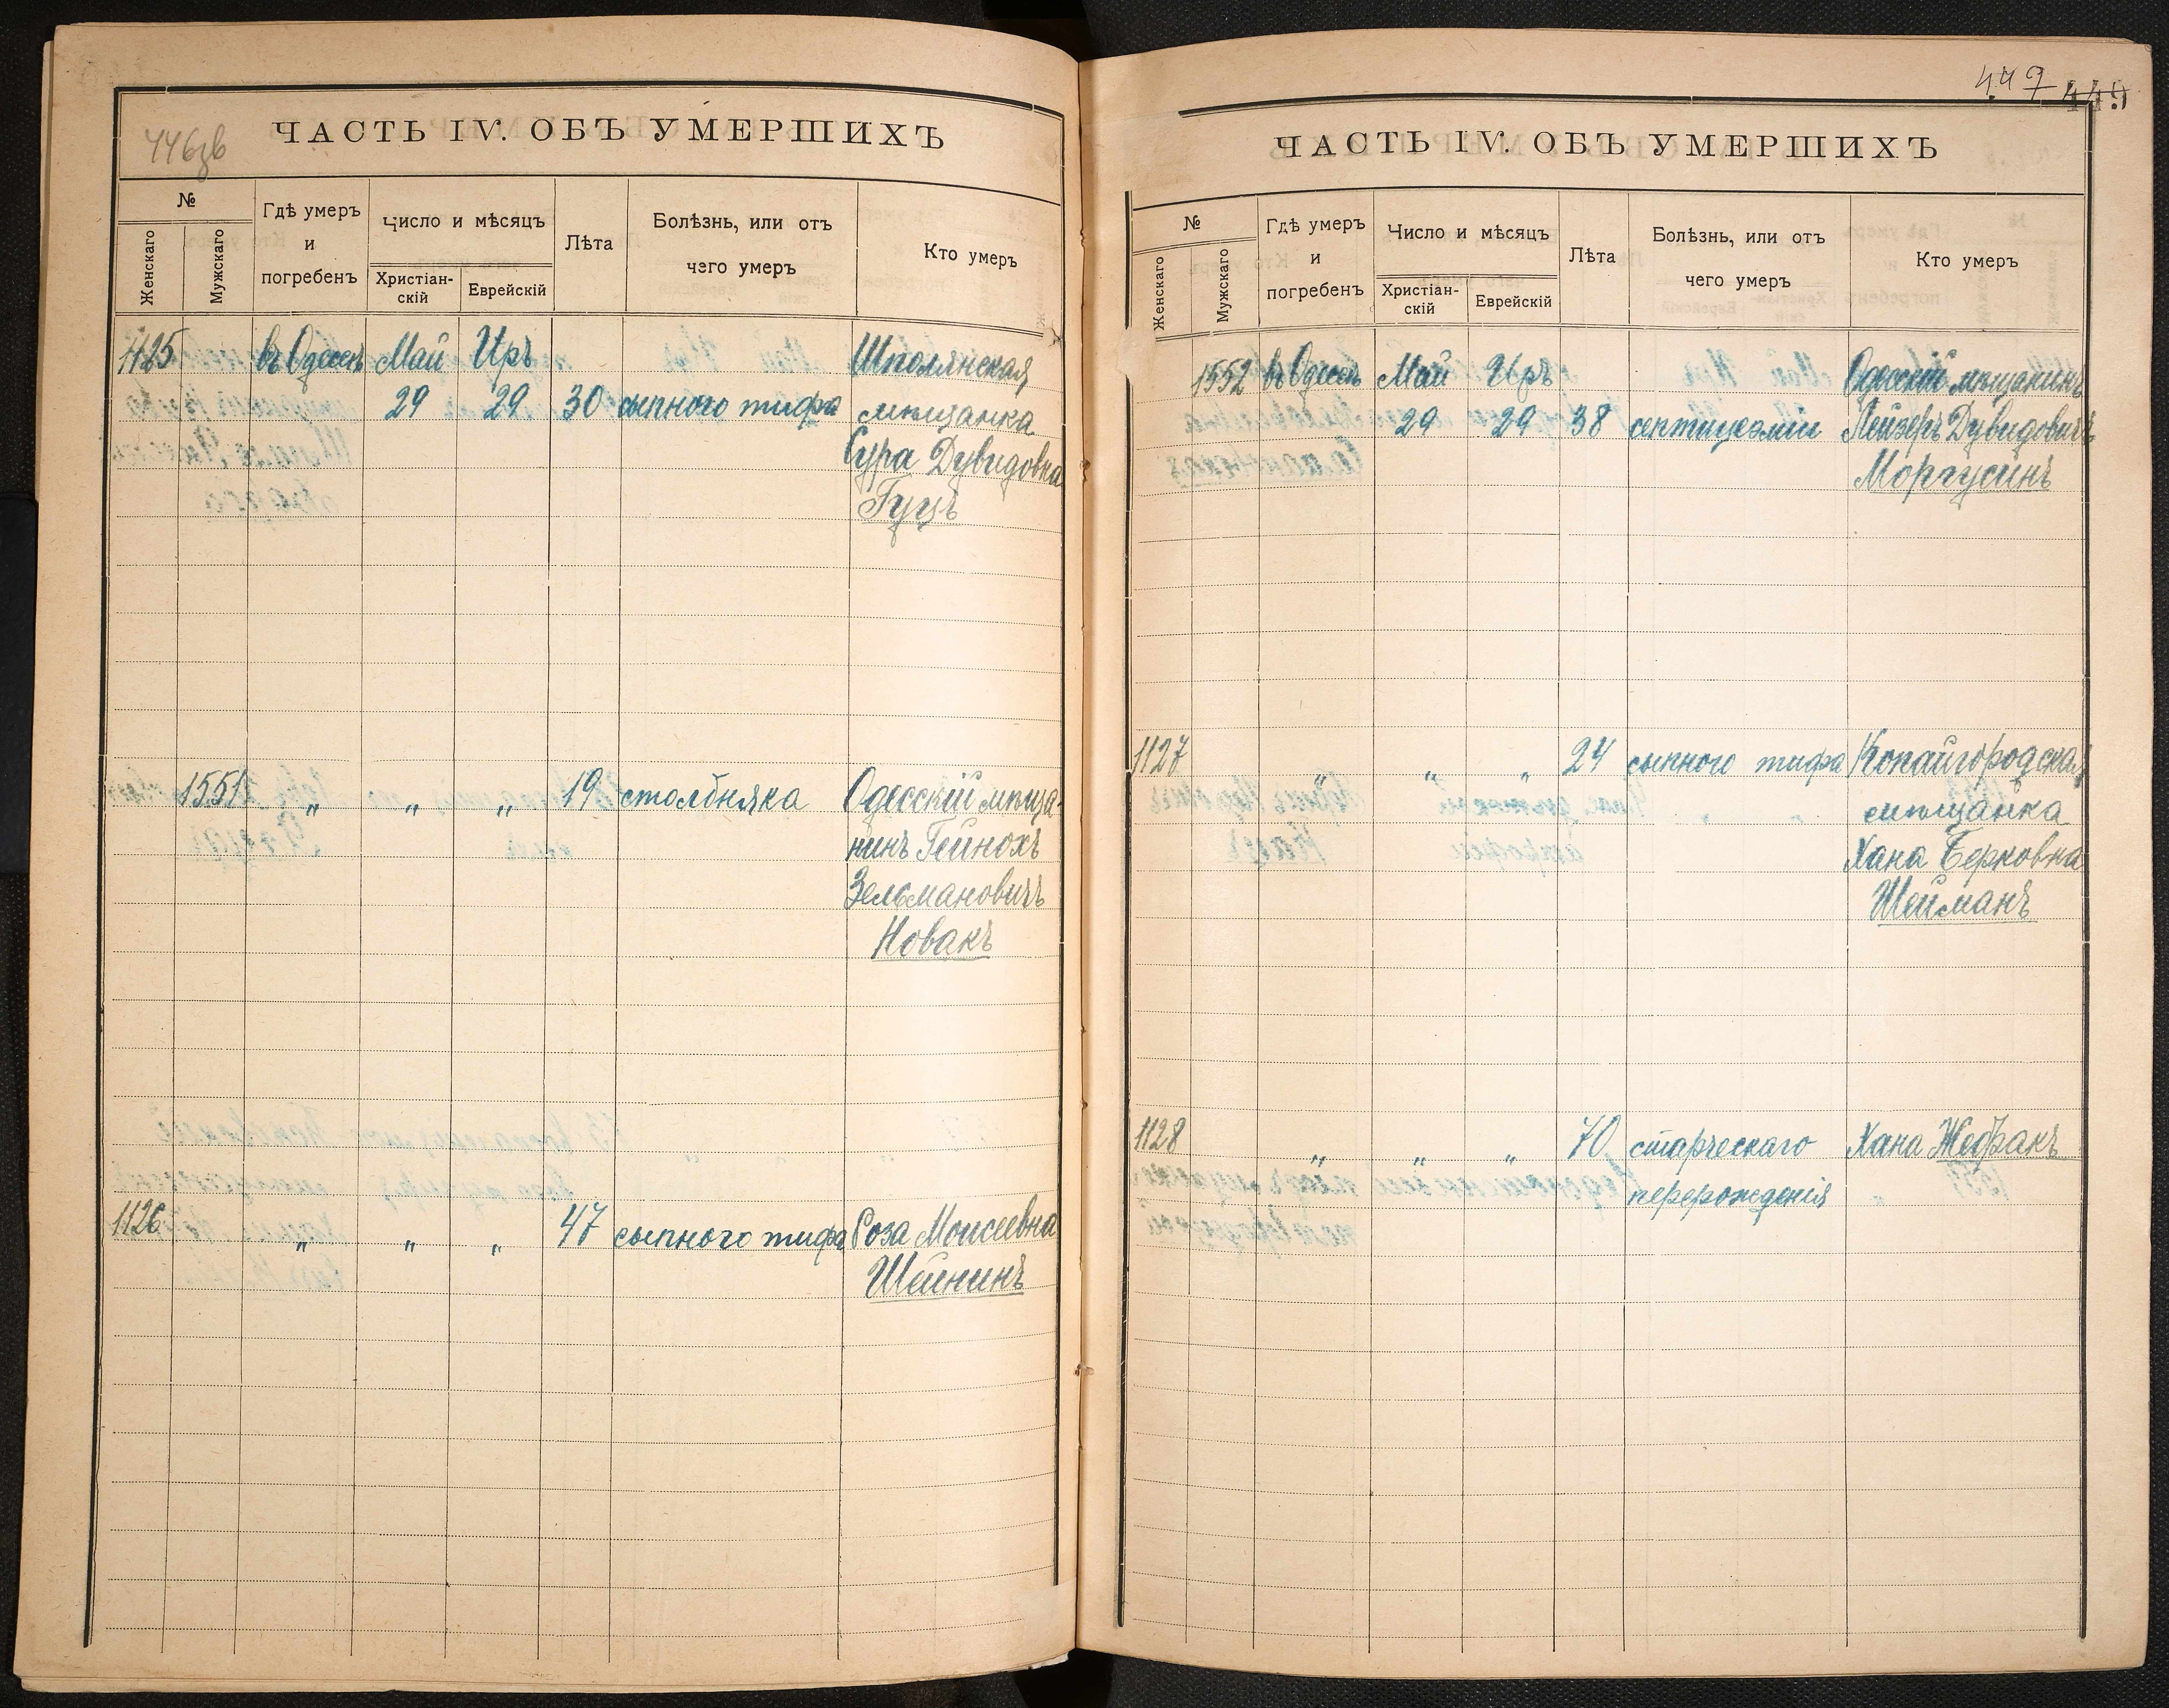 446зв
ЧАСТЬ IV. ОБЪ УМЕРШИХЪ
№
Женскаго
Мужскаго
Гдѣ умеръ и погребенъ
Число и мѣсяцъ
Христіан-
скій
Еврейскій
Лѣта
Болѣзнь, или отъ
чего умеръ
Кто умеръ
1125 въ Одессѣ Май Иръ Шполянская
29 29 30 сыпного тифа мѣщанка
Сура Дувидовна
Гуцъ
1551 „ „ „ 19 столбняка Одесскій мѣща-
нинъ Гейнохъ
Зельмановичъ
Новакъ
1126 „ „ „ 47 сыпного тифа Роза Моисеевна
Шейнинъ
447 449
ЧАСТЬ IV. ОБЪ УМЕРШИХЪ
№
Женскаго
Мужскаго
Гдѣ умеръ и погребенъ
Число и мѣсяцъ
Христіан-
скій
Еврейскій
Лѣта
Болѣзнь, или отъ
чего умеръ
Кто умеръ
1552 въ Одессѣ Май Иръ Одесскій мѣщанинъ
29 29 38 септицеэміи Лейзеръ Дувидовичъ
Моргусинъ
1127 „ „ „ 24 сыпного тифа Копайгородская
мѣщанка
Хана Берковна
Шейманъ
1128 „ „ „ 70 старческаго Хана Жебракъ
перерожденія